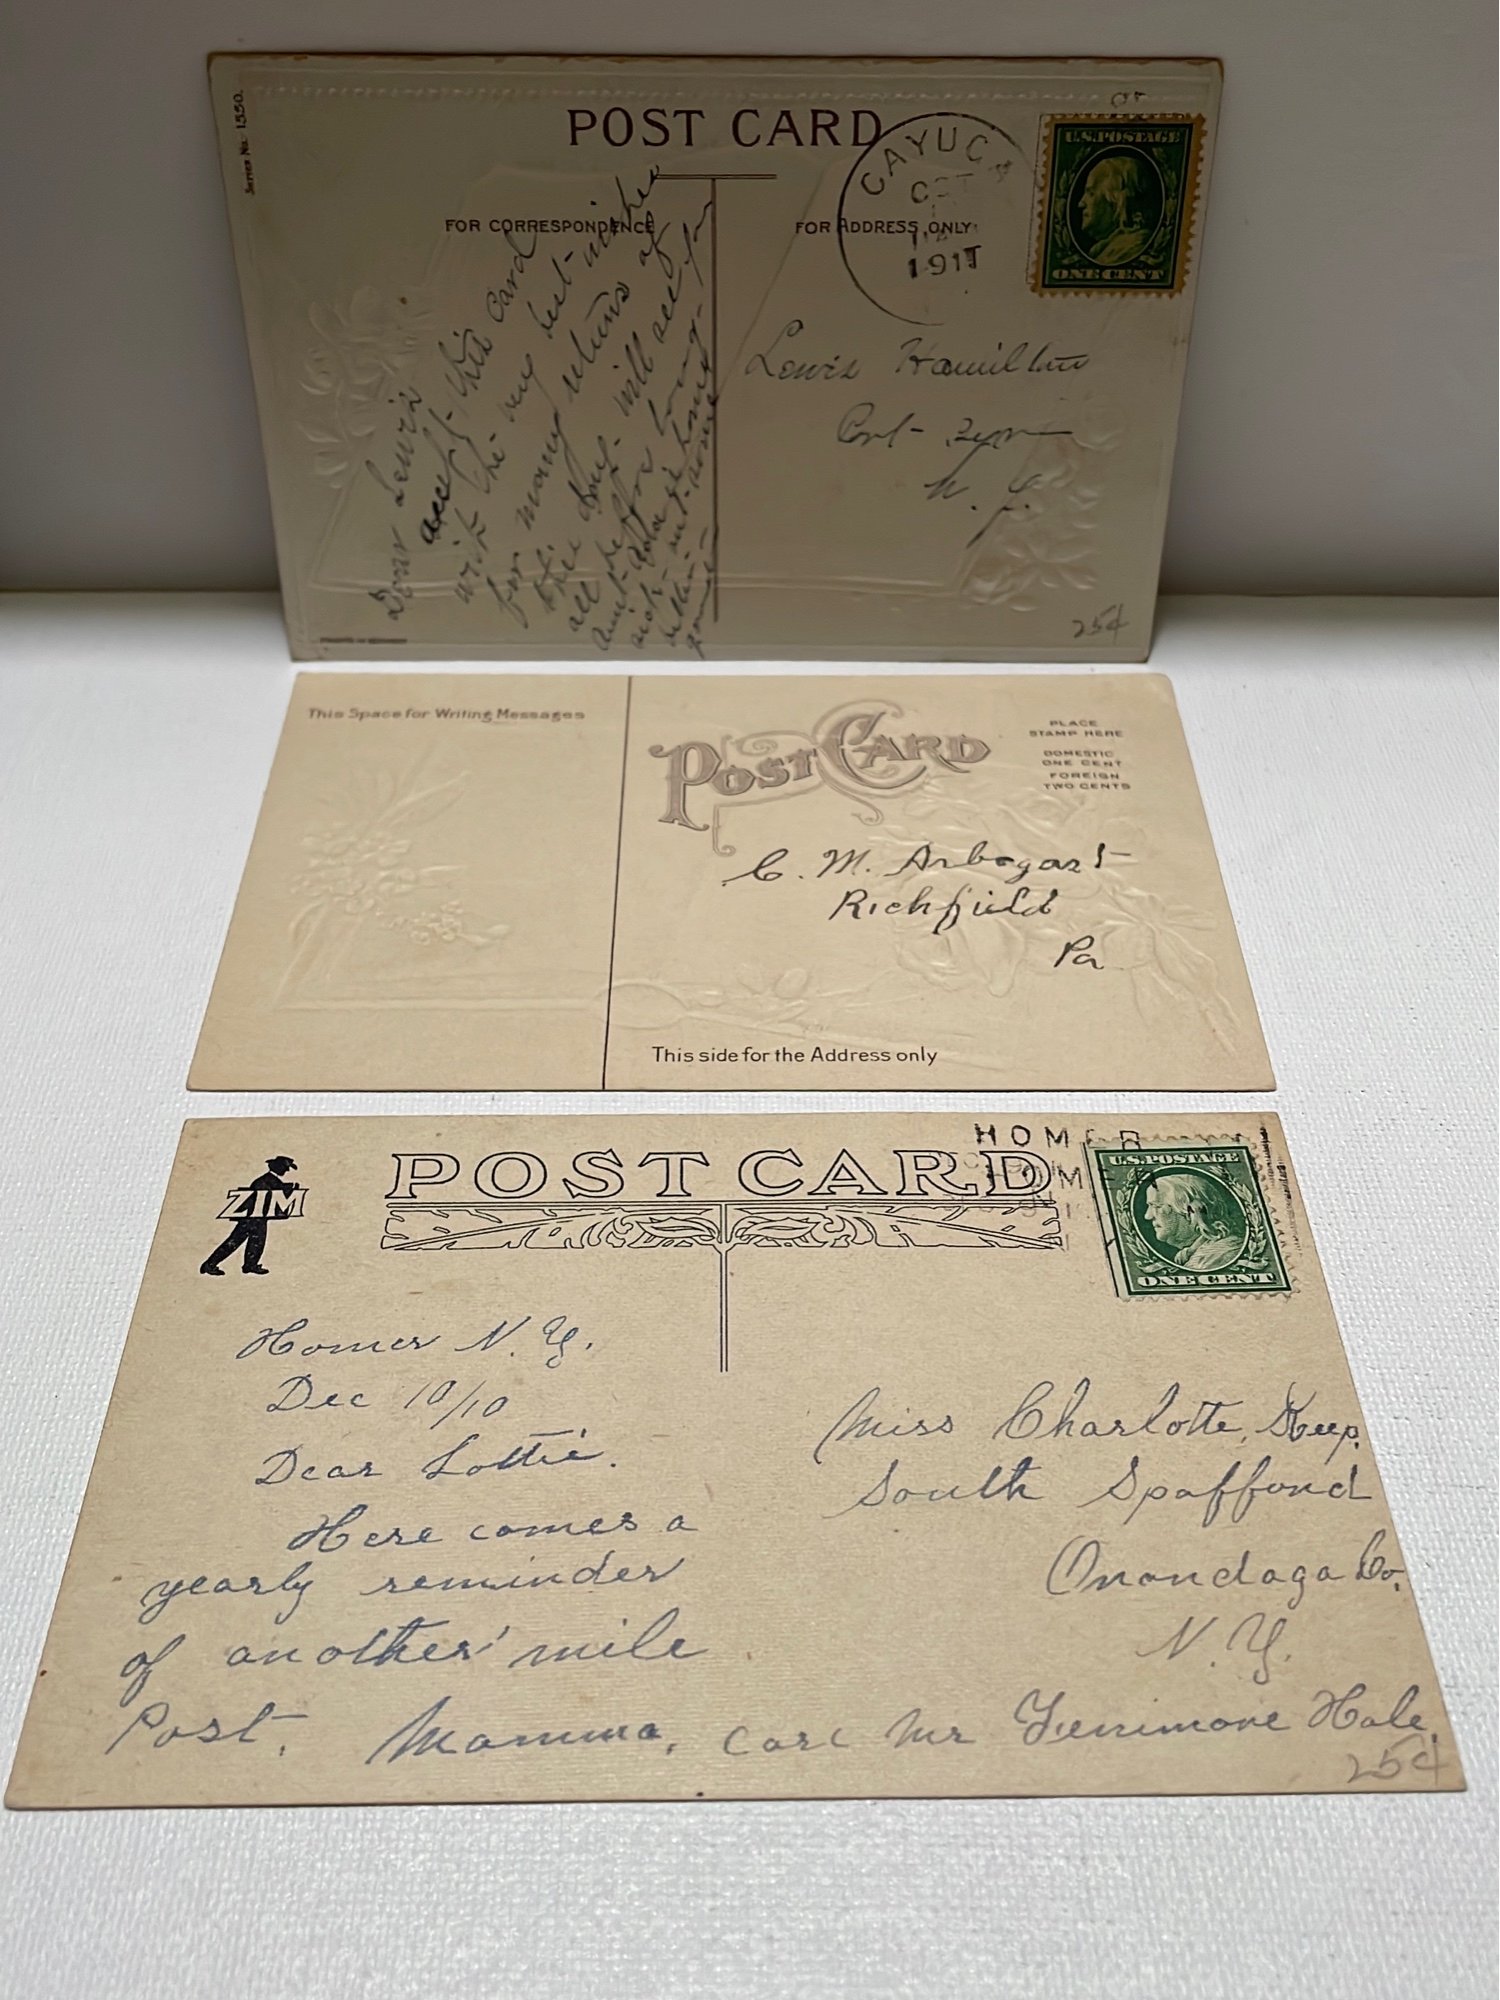 Series No. 1550.
POST CARD
CAYUGA
OCT
1911
U.S. POSTAGE
ONE CENT
FOR CORRESPONDENCE
FOR ADDRESS ONLY
Dear Lewis
accept this card
with the very best wishes
for many returns of
the day. will see
all before long
Aunt
sick not
gone
Lewis Hamilton
Port Byron
N. Y.
25¢
This Space for Writing Messages
POST CARD
PLACE
STAMP HERE
DOMESTIC
ONE CENT
FOREIGN
TWO CENTS
C. M. Arbogast
Richfield
Pa
This side for the Address only
ZIM
POST CARD
HOMER
U.S. POSTAGE
ONE CENT
Homer N. Y.
Dec 10/10
Dear Lottie.
Here comes a
yearly reminder
of another mile
Post. Mamma.
Miss Charlotte Keep.
South Spafford
Onondaga Co.
N. Y.
Care Mr Fennimore Hale.
25¢